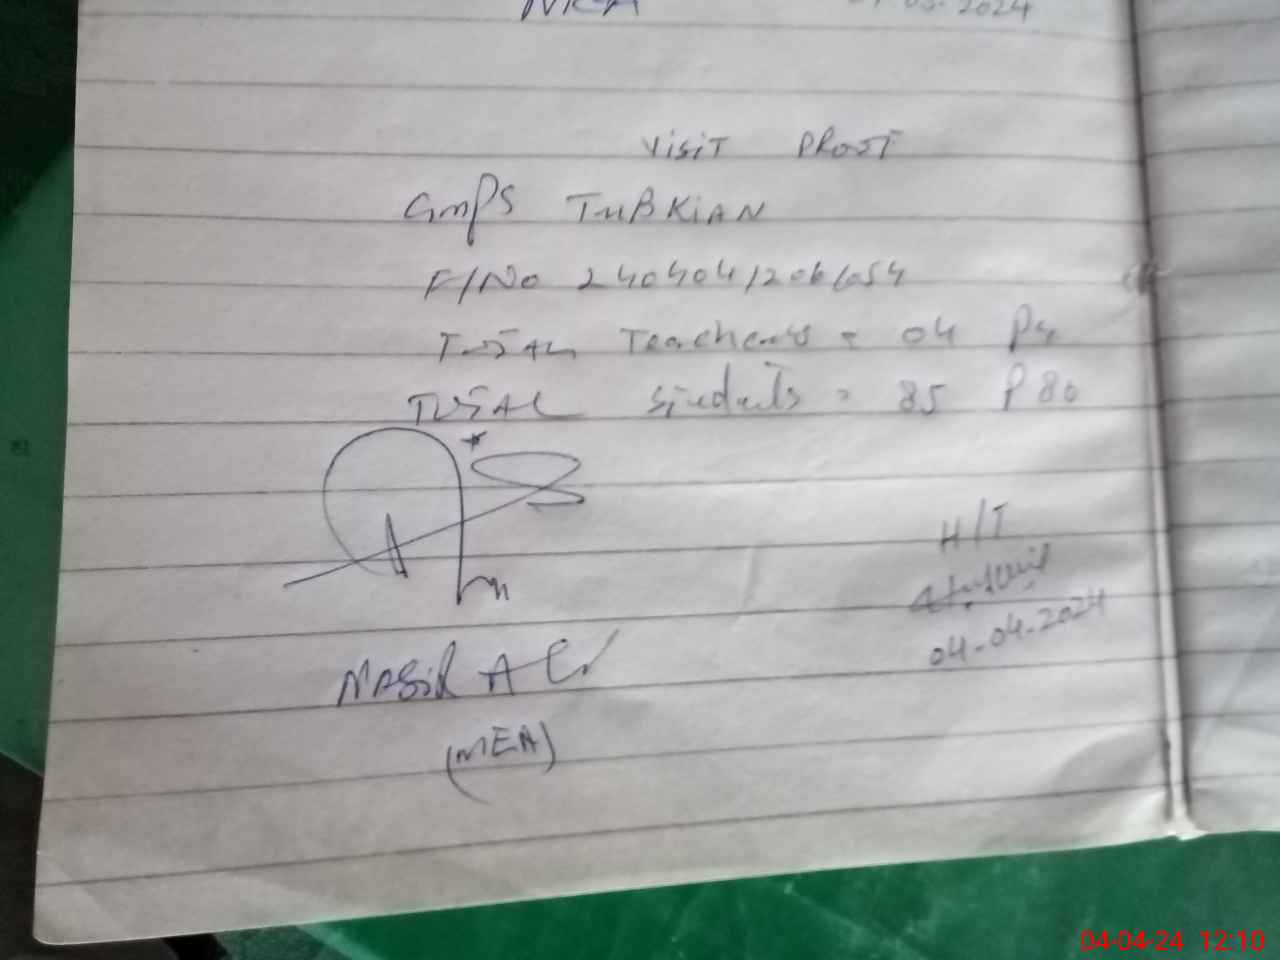 2024
VISIT PROOF
GMPS TUBKIAN
F/NO 2404041206054
TOTAL Teachers = 04 P4
TOTAL Students = 85 P 80
H/T
04-04-2024
NASIR ALI
(MEA)
04-04-24 12:10